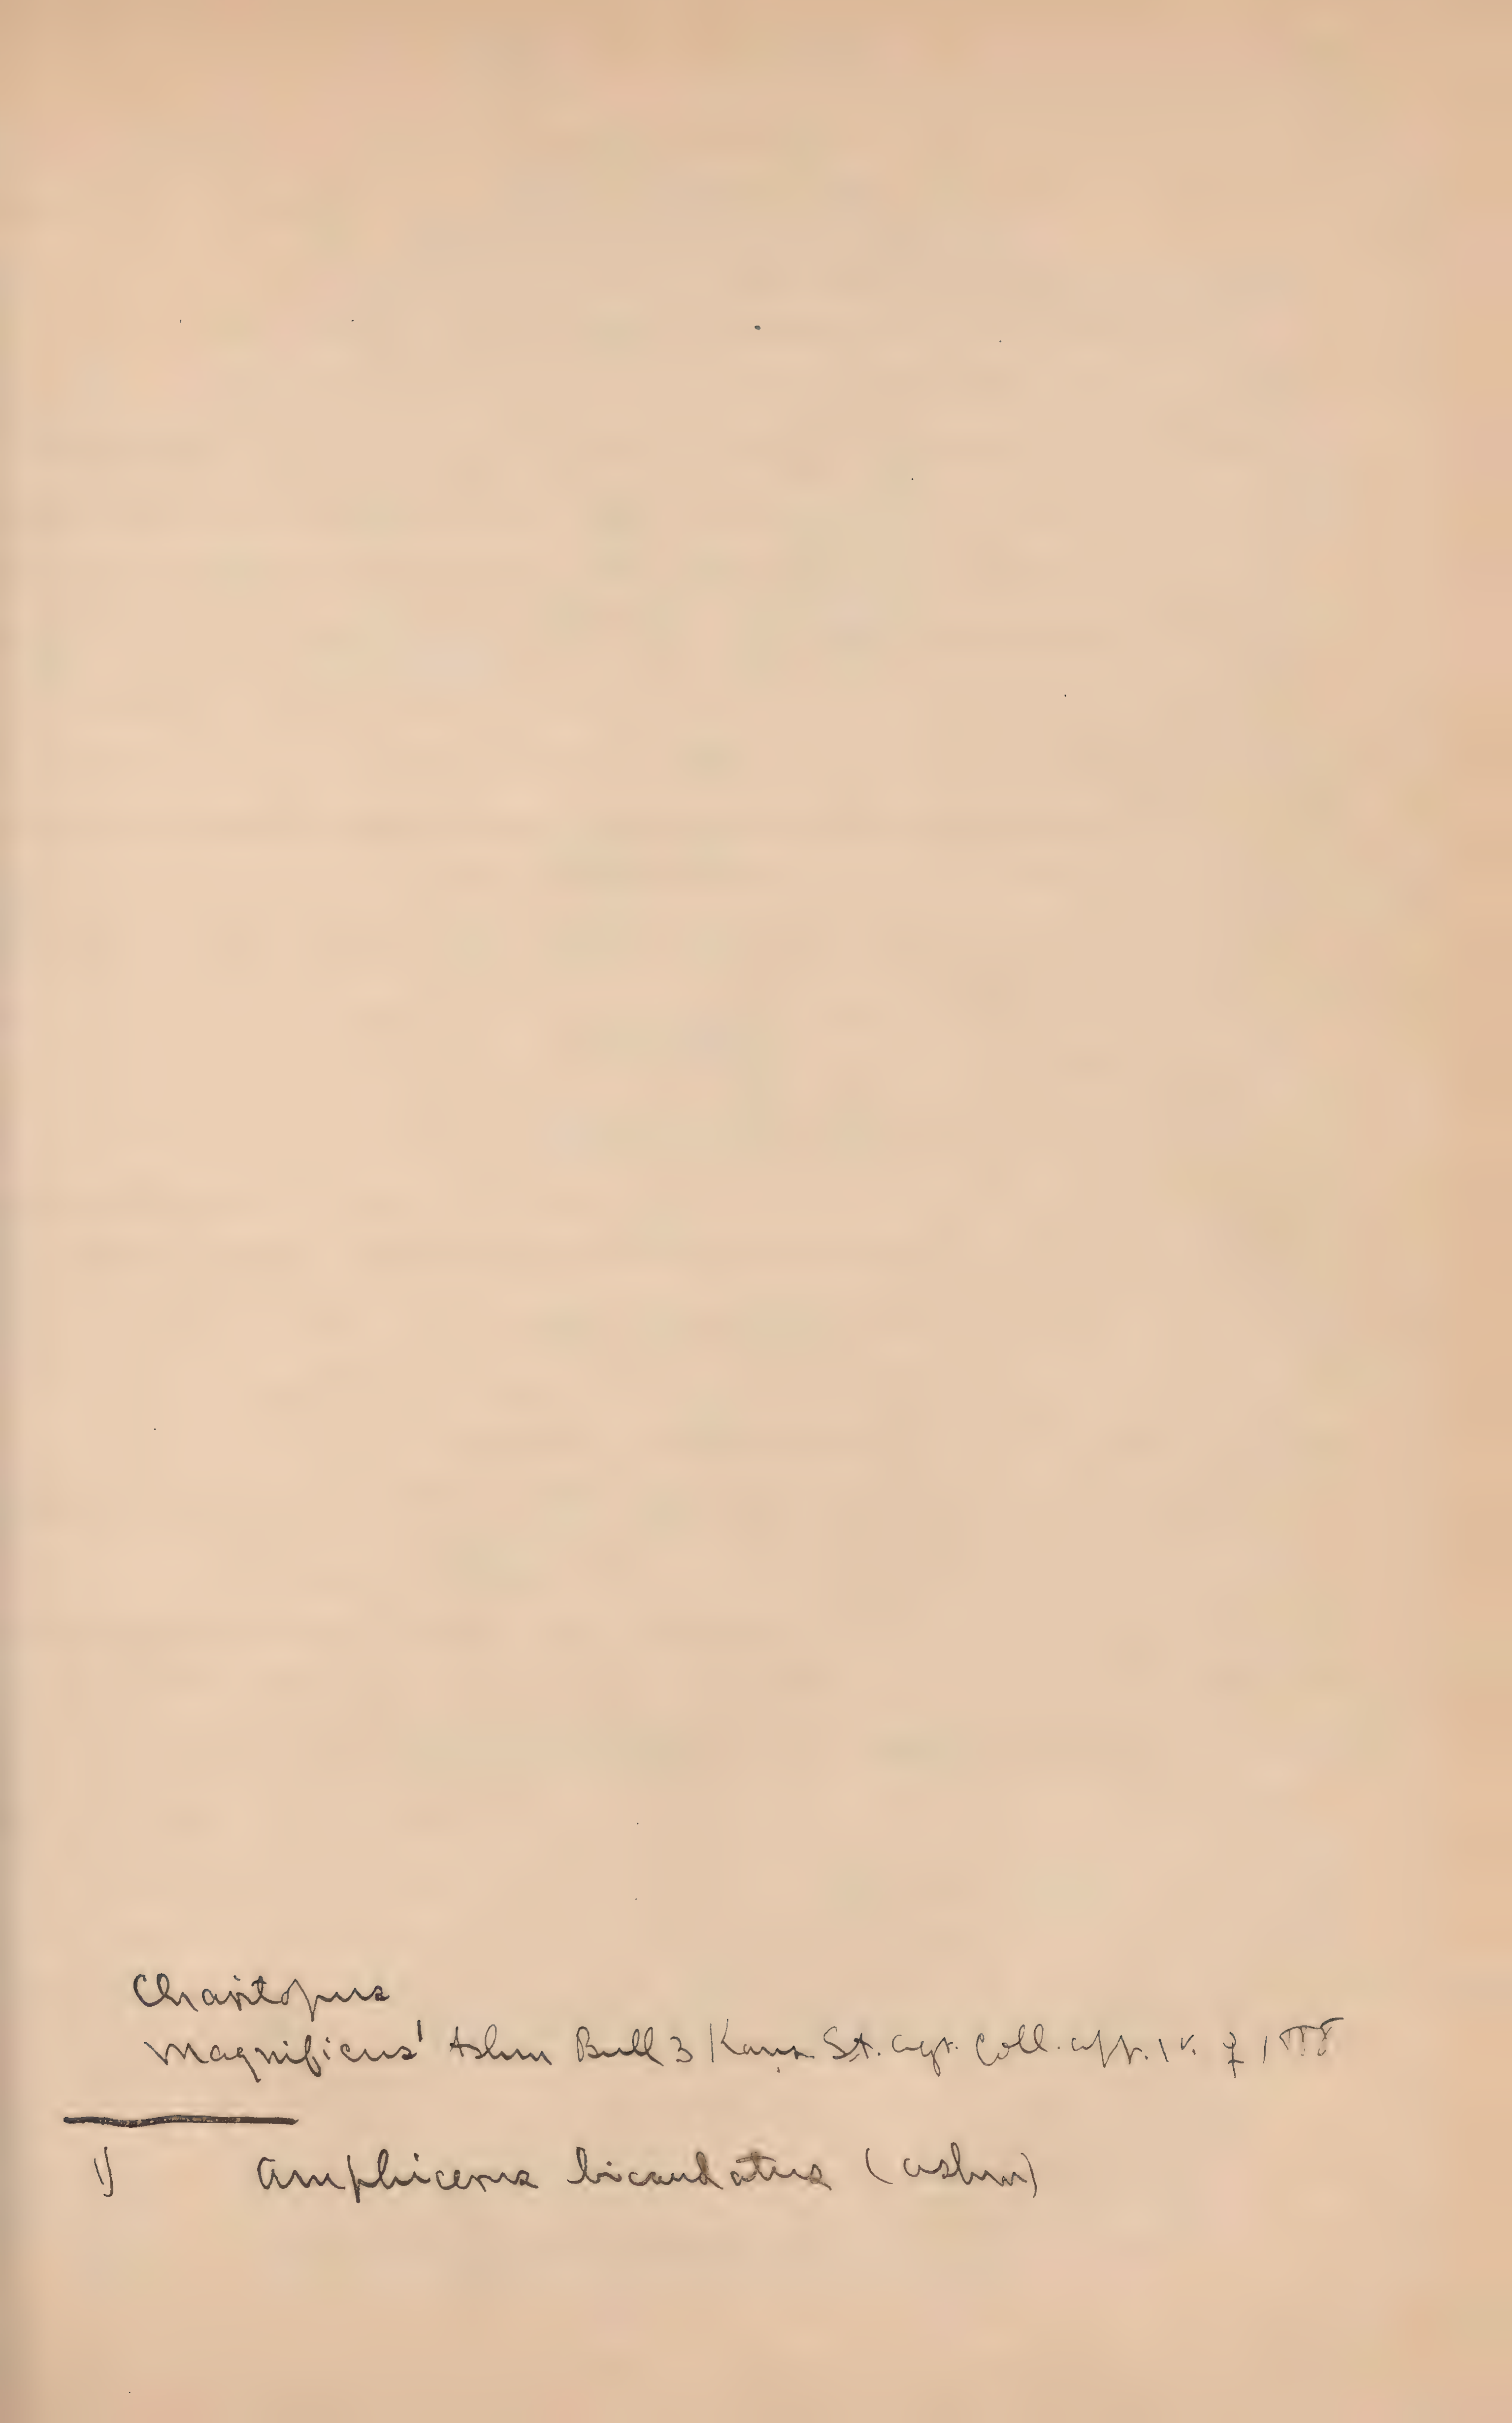 Charitopus
magnificus¹ Ashm Bull 3 Kans. St. Agr. Coll. App. 1 v. ♀ 1888
1) Amphicerus bicaudatus (Ashm)